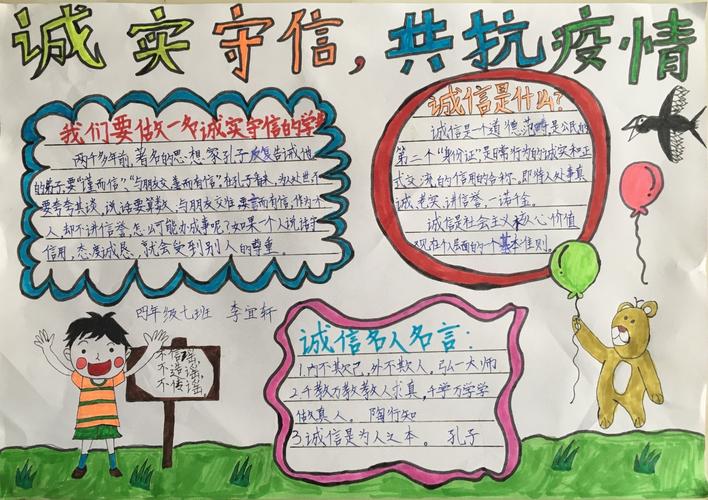 诚实守信，共抗疫情
我们要做一名诚实守信的学生
两千多年前，著名的思想家孔子就告诫他
的弟子要“谨而信”，“与朋友交言而有信”。在孔子看来，为人处世不
要夸夸其谈，说话要算数，与朋友交往要言而有信，作为个
人，却不讲信誉，怎么可能办成事呢？如果一个人说话守
信用，态度诚恳，就会受到别人的尊重。
诚信是什么？
诚信是一个道德范畴是公民的
第二个“身份证”是日常行为的诚实和正
式交流的信用的合称，即待人处事真
诚、老实、讲信誉、一诺千金。
诚信是社会主义核心价值
观准个人层面的一个基本准则。
四年级七班 李宜轩
不信谣，
不造谣，
不传谣。
诚信名人名言：
1.内不欺己，外不欺人，弘一大师
2.千教万教教人求真，千学万学学
做真人。 陶行知
3.诚信是为人之本。 孔子